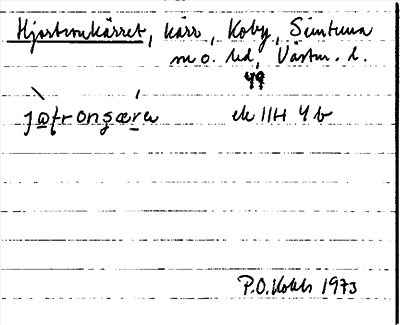 Hjortronkärret, kärr, Koby, Simtuna
sn o. hd, Västm. l.
49
jɷtronsæra ek 11H 4 b
P.O. Kohls 1973